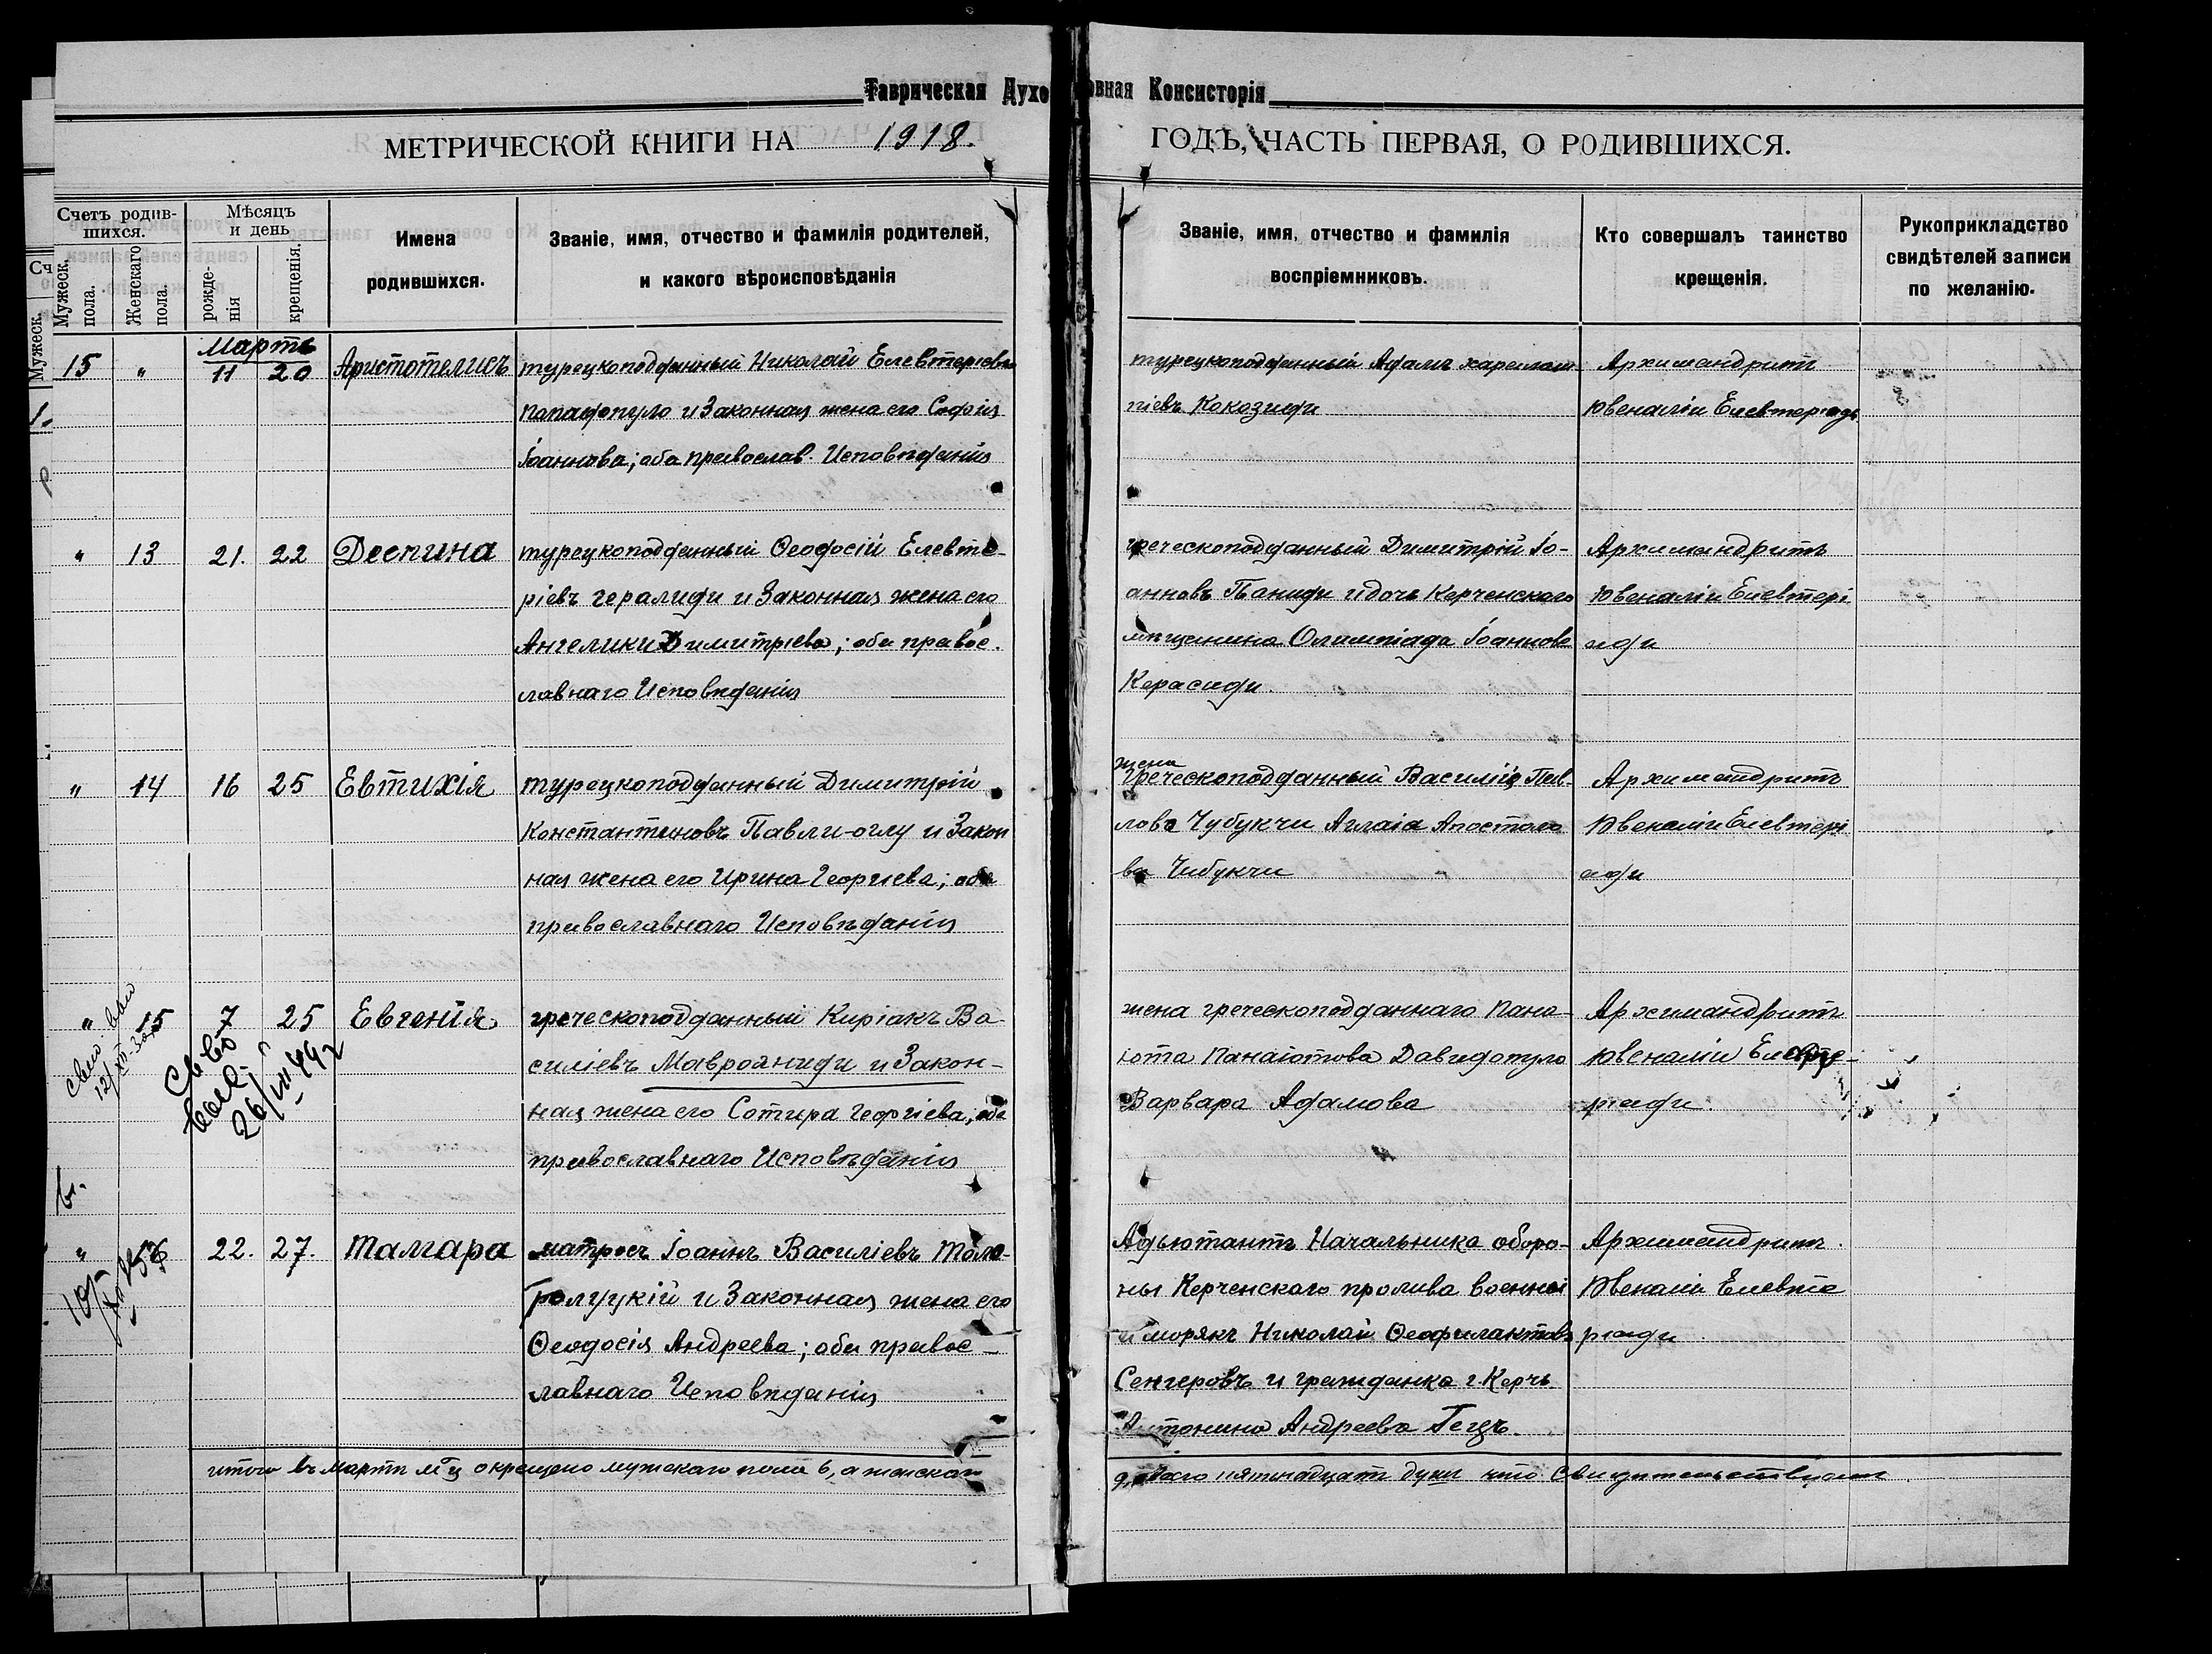 Таврическая Духовная Консисторія
МЕТРИЧЕСКОЙ КНИГИ НА 1918. ГОДЪ, ЧАСТЬ ПЕРВАЯ, О РОДИВШИХСЯ.
Счетъ родив-
шихся.
Мужеск.
пола.
Женскаго
пола.
Мѣсяцъ
и день
рожде-
нія
крещенія.
Имена
родившихся.
Званіе, имя, отчество и фамилія родителей,
и какого вѣроисповѣданія
Званіе, имя, отчество и фамилія
воспріемниковъ.
Кто совершалъ таинство
крещенія.
Рукоприкладство
свидѣтелей записи
по желанію.
Мартъ
15 " 11 20 Аристотелисъ
турецкоподданный Николай Елевтеріевъ
Пападопуло и Законная жена его Софія
Іоаннова; оба православ. Исповѣданія
турецкоподданный Адамъ Харлам
піевъ Кокозиди
Архимандритъ
Ювеналій Елевтеріадъ
" 13 21. 22 Деспина
турецкоподданный Ѳеодосій Елевте-
ріевъ Гералиди и Законная жена его
Ангелики Димитріева; оба правос.
лавнаго Исповѣданія
греческоподданный Димитрій Іо-
анновъ Паниди и дочь Керченскаго
мѣщанина Олимпіада Іоаннова
Керасиди.
Архимандритъ
Ювеналій Елевтері
ади
" 14 16 25 Евтихія
турецкоподданный Димитрій
Константиновъ Павли-оглу и Закон
ная жена его Ирина Георгіева; оба
православнаго Исповѣданія
жена
греческоподданный Василій Пав-
лова Чубукчи Аглаіа Апостоло
ва Чибукчи
Архимандритъ
Ювеналій Елевтері
ади
" 15 7 25 Евгенія
греческоподданный Киріакъ Ва-
силіевъ Мавроаниди и Закон-
ная жена его Сотира Георгіева, оба
православнаго Исповѣданія
жена греческоподданнаго Пана-
іота Панаіотова Давидопуло
Варвара Адамова
Архимандритъ
Ювеналій Елевте-
ріади.
26/VII 49 г
" 22. 27. Тамара
матросъ Іоаннъ Василіевъ
и Законная жена его
Ѳеодосія Андреева; оба правос-
лавнаго Исповѣданія
Адьютантъ Начальника оборо-
ны Керченскаго пролива военной
морякъ Николай Ѳеофилактовъ
Сенгеровъ и гражданка г. Керчь
Антонина Андреева Гецъ.
Архимандритъ.
Ювеналій Елевте
ріади
итого въ Мартѣ м-цѣ окрещено мужскаго пола 6, а женскаго
9, всего пятнадцать душъ что Свидѣтельствуемъ